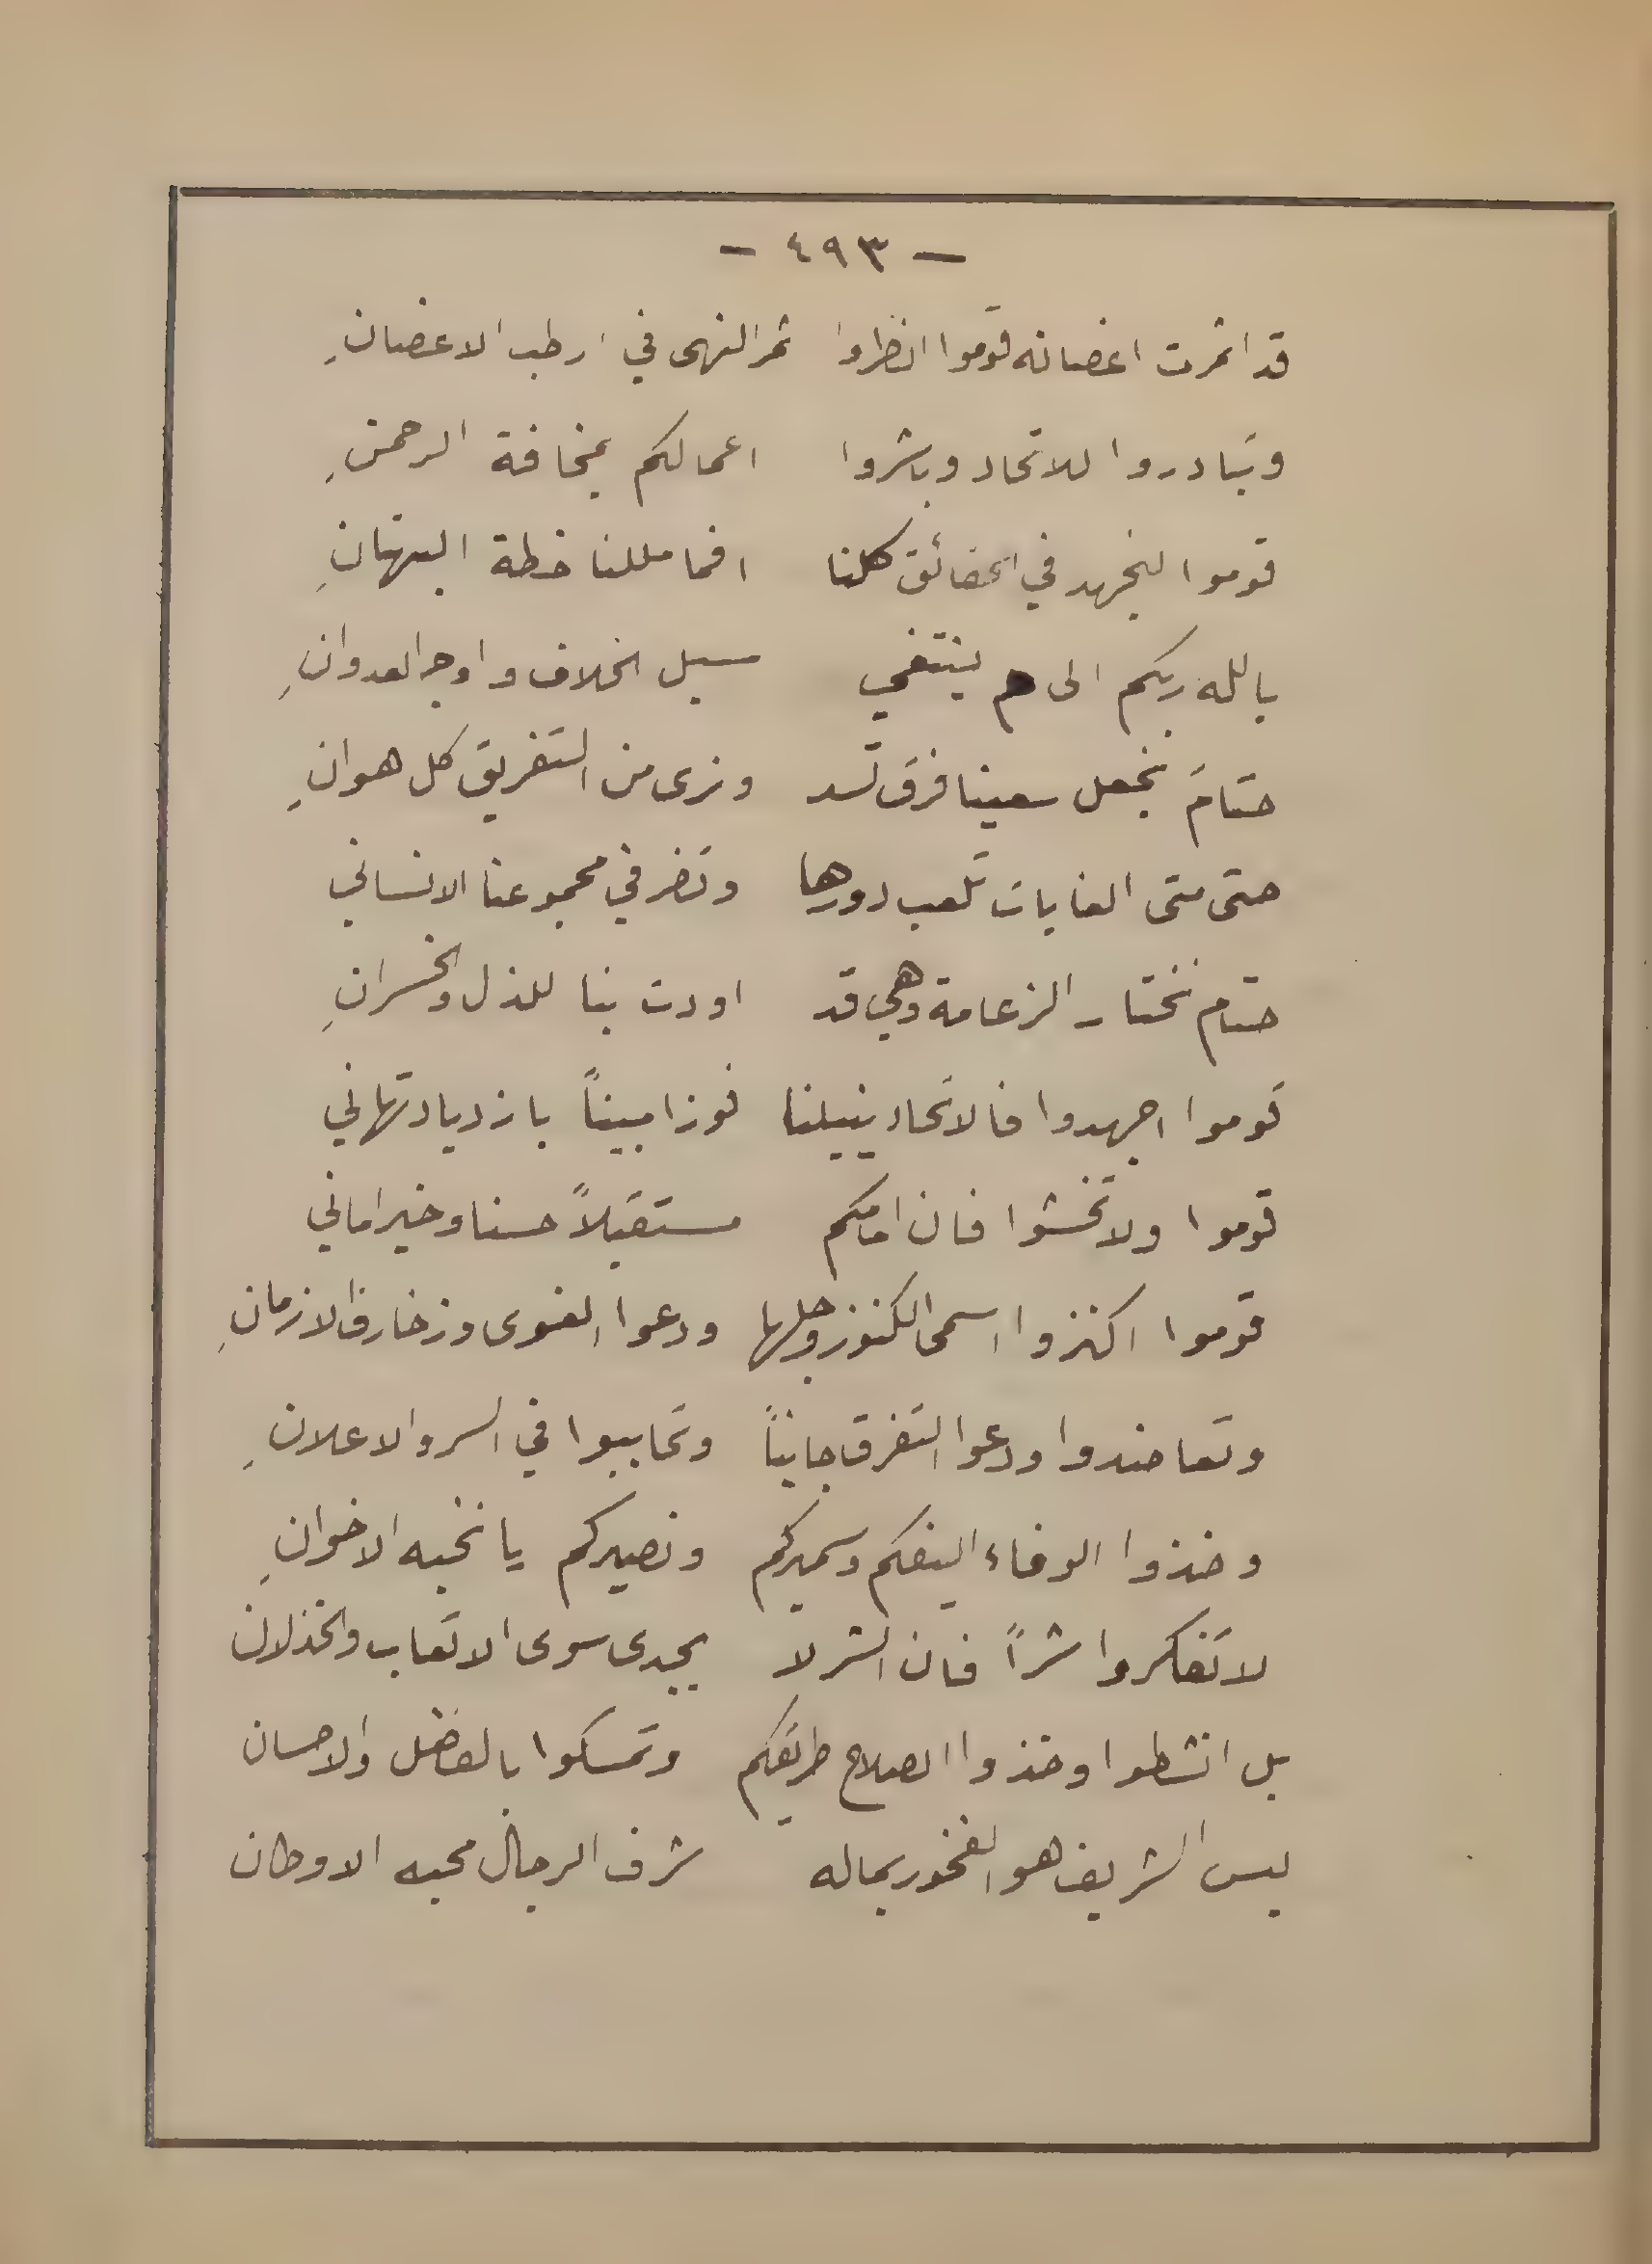 — ٤٩٣ —
قد اثمرت اغصانه قوموا انظروا ثمر النهى في ارطب الاغصانِ
وتبادروا للاتحاد وباشروا اعمالكم بمخافة الرحمنِ
قوموا لنجهد في الحقائق كلنا افما مللنا خطة البهتانِ
بالله ربكم الى م ينتفي سبل الخلاف واوجه العدوانِ
حتامَ نجعل سعينا فرق تسد ونرى من التفريق كل هوانِ
حتى متى الغايات تلعب دورها وتضر في مجموعنا الانساني
حتام نختار الزعامة وهي قد اودت بنا للذل والخسرانِ
قوموا اجهدوا فالاتحاد ينيلنا فوزا مبيناً بازدياد تهاني
قوموا ولا تخشوا فان امامكم مستقبلاً حسنا وخير اماني
قوموا اكنزوا اسمى الكنوز وجلها ودعوا الغوى وزخارف الازمانِ
وتعاضدوا ودعوا التفرق جانباً وتحاببوا في السر والاعلانِ
وخذوا الوفاء اليفكم وسميركم ونصيركم يا نخبه الاخوانِ
لا تفكروا شراً فان الشر لا يجدى سوى الاتعاب والخذلان
بل انشطوا وخذوا الصلاح طريقكم وتمسكوا بالفضل والاحسان
ليس الشريف هو الفخور بماله شرف الرجال محبه الاوطان